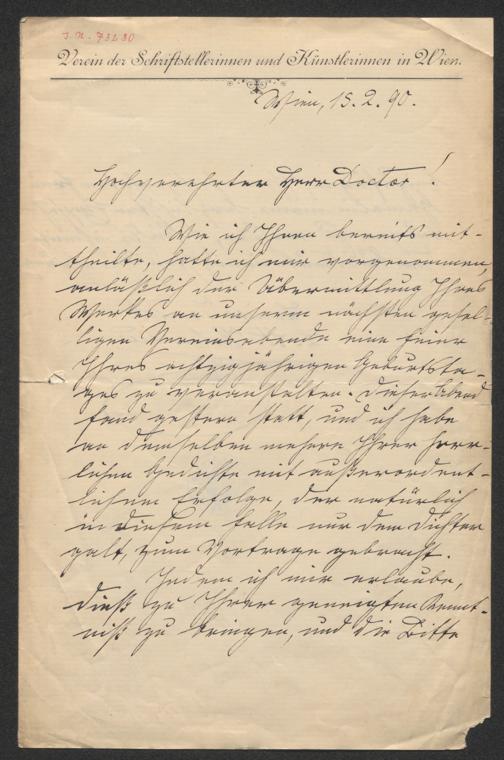 J. N. 73280
Verein der Schriftstellerinnen und Künstlerinnen in Wien.
Wien, 15. 2. 90.
Hochverehrter Herr Doctor!
Wie ich Ihnen bereits mit-
theilte, hatte ich mir vorgenommen,
anläßlich der Übermittlung Ihres
Werkes an unserm nächsten gesel-
ligen Vereinsabende eine Feier
Ihres achtzigjährigen Geburtsta-
ges zu veranstalten. Dieser Abend
fand gestern statt, und ich habe
an demselben mehrere Ihrer herr-
lichen Gedichte mit außerordent-
lichem Erfolge, der natürlich
in diesem Falle nur dem Dichter
galt, zum Vortrage gebracht.
Indem ich mir erlaube,
dieß zu Ihrer geneigten Kennt-
niß zu bringen, und die Bitte